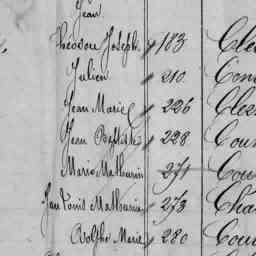 Jean
Théodore Joseph 183 Cle
Julien 210
Jean Marie 226 Cler
Jean Baptiste 228 Cour
Marie Mathurin 271 Cou
Jean Louis Mathurin 273 Cha
Adolphe Marie 280 Cou